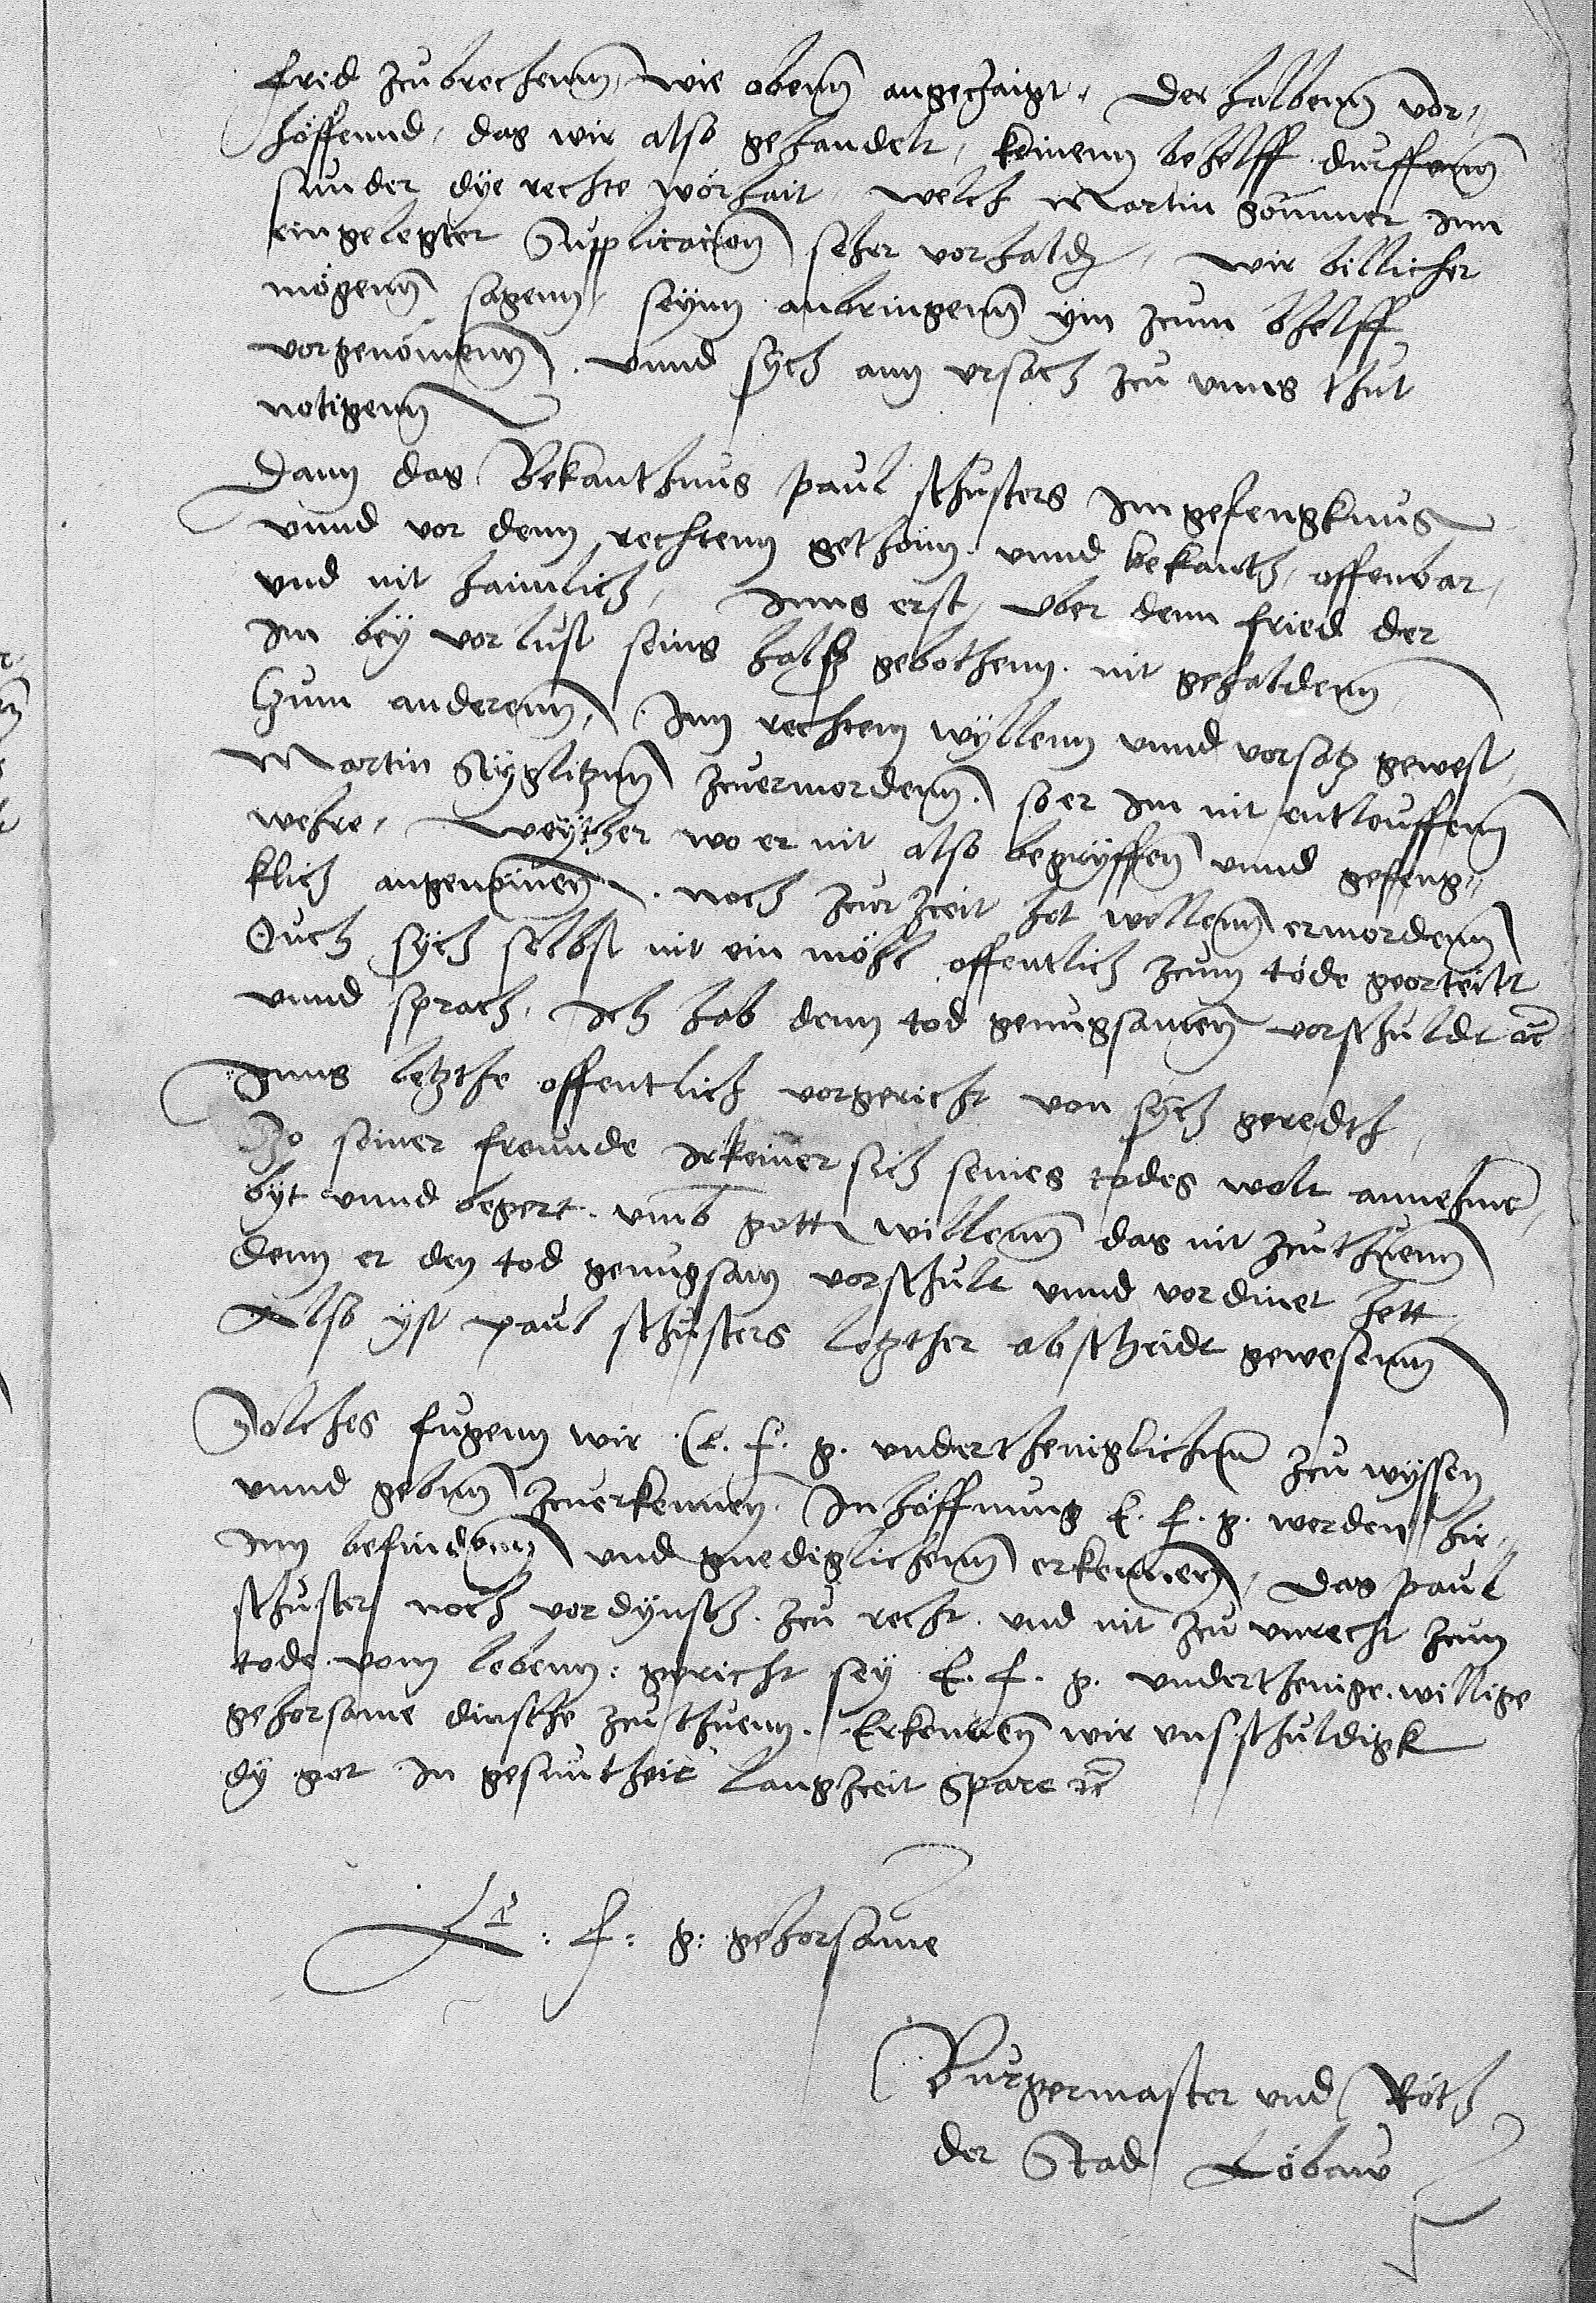 frid zcubrechenn, wie obenn angeczaigt. Der halbenn vor¬
höffennd, das wir also gehandelt, keinenn behelff durffenn
sunder dye rechte worhait, welch Martin Sommer inn
eingelegter Supplicacion seher vorhald, wir billicher
mögenn sagenn, seynn anbringenn ym zcum bhelff
vorgenömenn. vnnd sych ann vrsach zcu vnns thut
notigenn
Dann das Bekanthnus paul schusters im gefengknus
vnnd vor denn rechtenn gethonn. vnnd bekanth, offenbar,
vnd nit haimlich, Inns erst, vber denn fried der
im bey vorlust seins halß gebothenn. nit gehaldenn
Czum anderenn, Inn rechtem wyllenn vnnd vorsatz gewest,
Martin Styglitznn zcuermordenn. so er im nit entlouffenn
wehre, weyther wo er nit also begryffen vnnd gefeng¬
klich angenomen. noch zcur zceit hot wollenn ermordenn
Ouch sych selbst nit ein möhl offentlich zcum töde georteilt
vnnd sprach, Ich hab denn tod genugsamen vorschuldt etc
Inns letzthe offentlich vorgericht von sych geredth,
So seiner freunde irkeiner sich seines todes wolt annehmen,
byt vnnd begert. vmb gott willenn das nit zcuthuenn
denn er den tod genugsam vorschult vnnd vordinet hett,
Also yst paul schusters letzther abscheidt gewesenn
Solches fugenn wir E. f. g. vndertheniglichenn zcu wyssen
vnnd gebenn zcuerkennen. In höffnung E. f. g. werden hir¬
inn befindenn vnd gnediglichenn erkennen, das paul
schuster noch vordynsth. zcu recht. vnd nit zcu vnrecht zcum
tode vom lebenn: gericht sey E. f. g. vnderthenige. willige
gehorsame dinsthe zcu thuenn. Erkennen wir vns schuldigk
dy got in gesuntheit langzceit Spare etc
E: f: g: gehorsame
Burgermaster vnd Röth
der Stad Löbaw